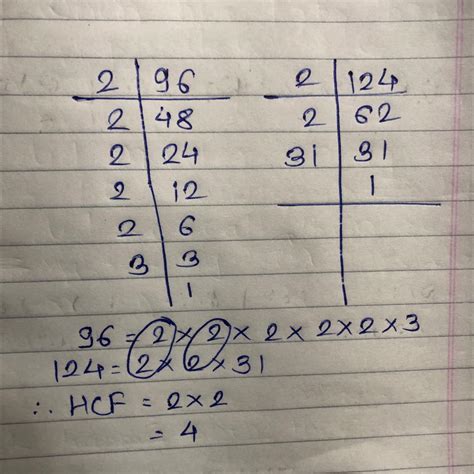 2 | 96
2 | 48
2 | 24
2 | 12
2 | 6
3 | 3
1
2 | 124
2 | 62
31 | 31
1
96 = 2 × 2 × 2 × 2 × 2 × 3
124 = 2 × 2 × 31
∴ HCF = 2 × 2
= 4